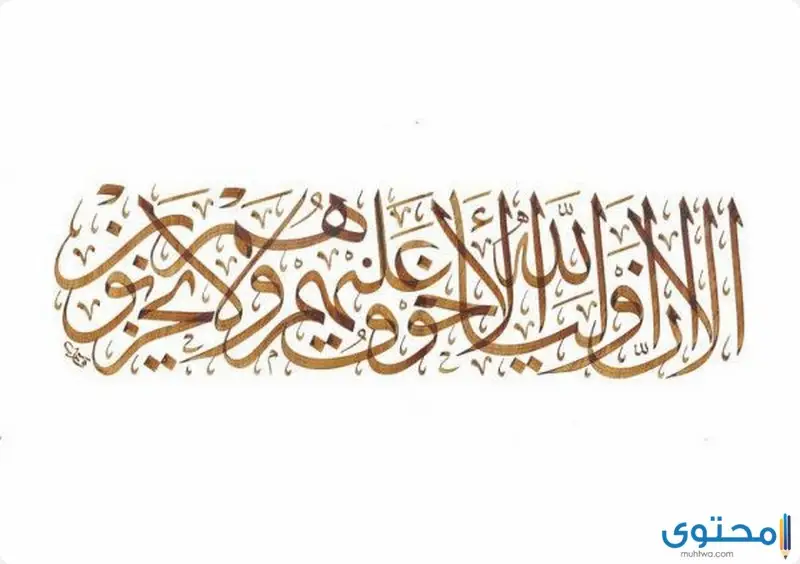 ألا إن أولياء الله لا خوف عليهم ولا هم يحزنون
محتوى
muhtwa.com